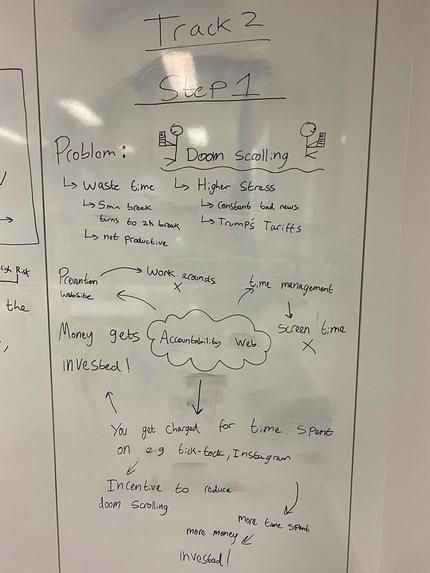 Track 2
Step 1
Problem:
Doom Scrolling
↳ Waste time
↳ Higher Stress
↳ 5min break
turns to 2h break
↳ not productive
↳ Constant bad news
↳ Trump's Tariffs
Risk
the
Prevention
website
Work arounds
X
time management
screen time
X
Accountability Web.
Money gets
invested!
You get charged for time spent
on e.g tick-tock, Instagram
Incentive to reduce
doom scrolling
more time spent
more money
invested!